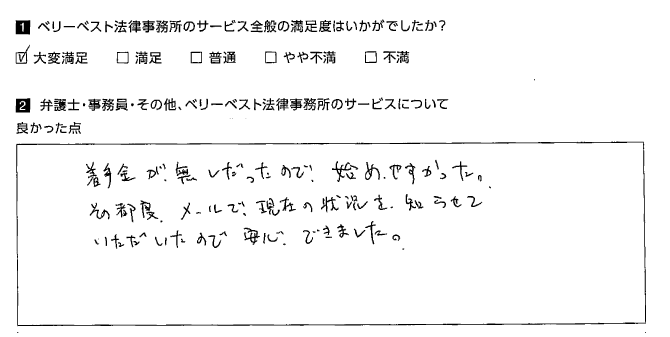 1 ベリーベスト法律事務所のサービス全般の満足度はいかがでしたか？
☑ 大変満足 □ 満足 □ 普通 □ やや不満 □ 不満
2 弁護士・事務員・その他、ベリーベスト法律事務所のサービスについて
良かった点
着手金が、無しだったので、始めやすかった。
その都度、メールで、現在の状況を、知らせて
いただいたので安心、できました。